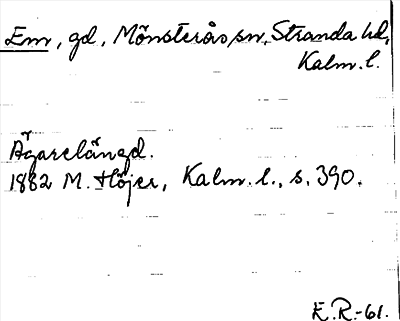 Em, gd, Mönsterås sn, Stranda hd,
Kalm. l.
Ägarelängd.
1882 M. Höjer, Kalm. l., s. 390.
E.R.-61.